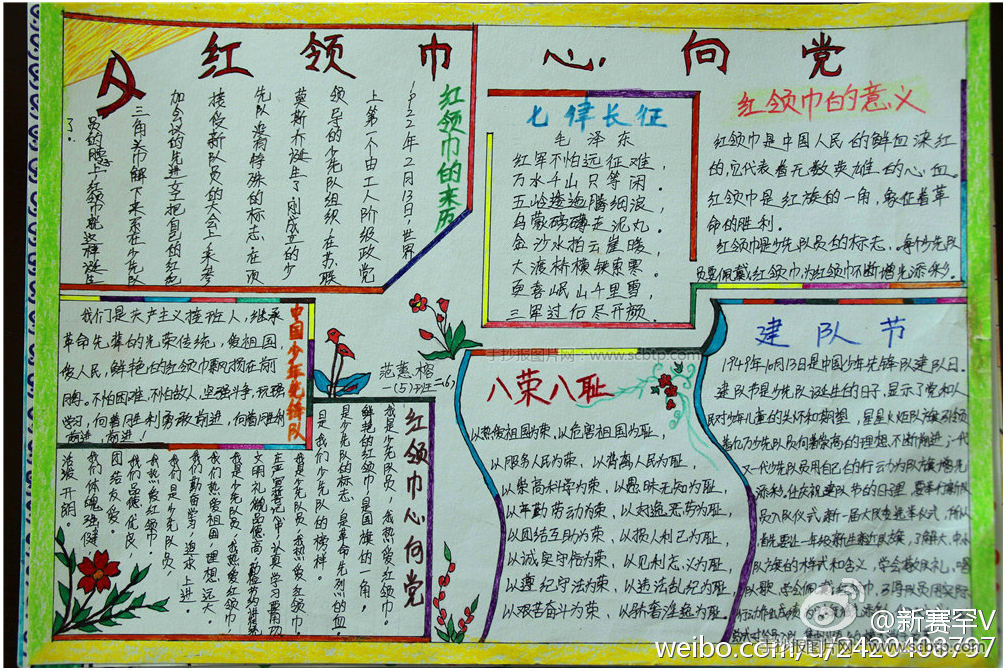 红领巾 心向党
红领巾的来历
1922年2月13日，世界
上第一个由工人阶级政党
领导的少先队组织，在苏联
莫斯科诞生了。刚成立的少
先队没有特殊的标志，在一次
接受新队员的大会上，来参
加会议的先进女工把自己的红色
三角头巾解下来系在少先队
员的
上，红领巾就这样诞生
了。
七律长征
毛泽东
红军不怕远征难，
万水千山只等闲。
五岭逶迤腾细浪，
乌蒙磅礴走泥丸。
金沙水拍云崖暖，
大渡桥横铁索寒。
更喜岷山千里雪，
三军过后尽开颜。
红领巾的意义
红领巾是中国人民的鲜血染红
的，它代表着无数英雄的心血。
红领巾是红旗的一角，象征着革
命的胜利。
红领巾是少先队员的标志。每个少先队
员要佩戴红领巾，为红领巾不断增光添彩。
中国少年先锋队
我们是共产主义接班人，继承
革命先辈的光荣传统，爱祖国，
爱人民，鲜艳的红领巾飘扬在前
胸。不怕困难，不怕敌人，坚强斗争，顽强
学习，向着胜利勇敢前进，向着胜利
前进，前进！
红领巾心向党
我是少先队员，我热爱红领巾。
鲜艳的红领巾，是国旗的一角，
是少先队的标志，是革命先烈的血，
是我们少先队的榜样。
我是少先队员，我热爱红领巾。
我是少先队员，我热爱红领巾，
我们热爱祖国，理想远大，
我们勤奋学习，追求上进。
我们是少先队员，
我热爱红领巾，
我们品德优良，
团结友爱。
我们体魄强健，
活泼开朗。
八荣八耻
以热爱祖国为荣，以危害祖国为耻，
以服务人民为荣，以背离人民为耻，
以崇尚科学为荣，以愚昧无知为耻，
以辛勤劳动为荣，以好逸恶劳为耻，
以团结互助为荣，以损人利己为耻，
以诚实守信为荣，以见利忘义为耻，
以遵纪守法为荣，以违法乱纪为耻，
以艰苦奋斗为荣，以骄奢淫逸为耻。
建队节
1949年10月13日是中国少年先锋队建队日。
建队节是少先队诞生的日子，显示了党和人
民对少年儿童的关怀和期望，星星火炬队旗引领
着亿万少先队员向着崇高的理想不断前进，一代
又一代少先队员用自己的行动为队旗增光
添彩。
手抄报图片网 www.scbtp.com
@新赛罕V
weibo.com/u/2420403797